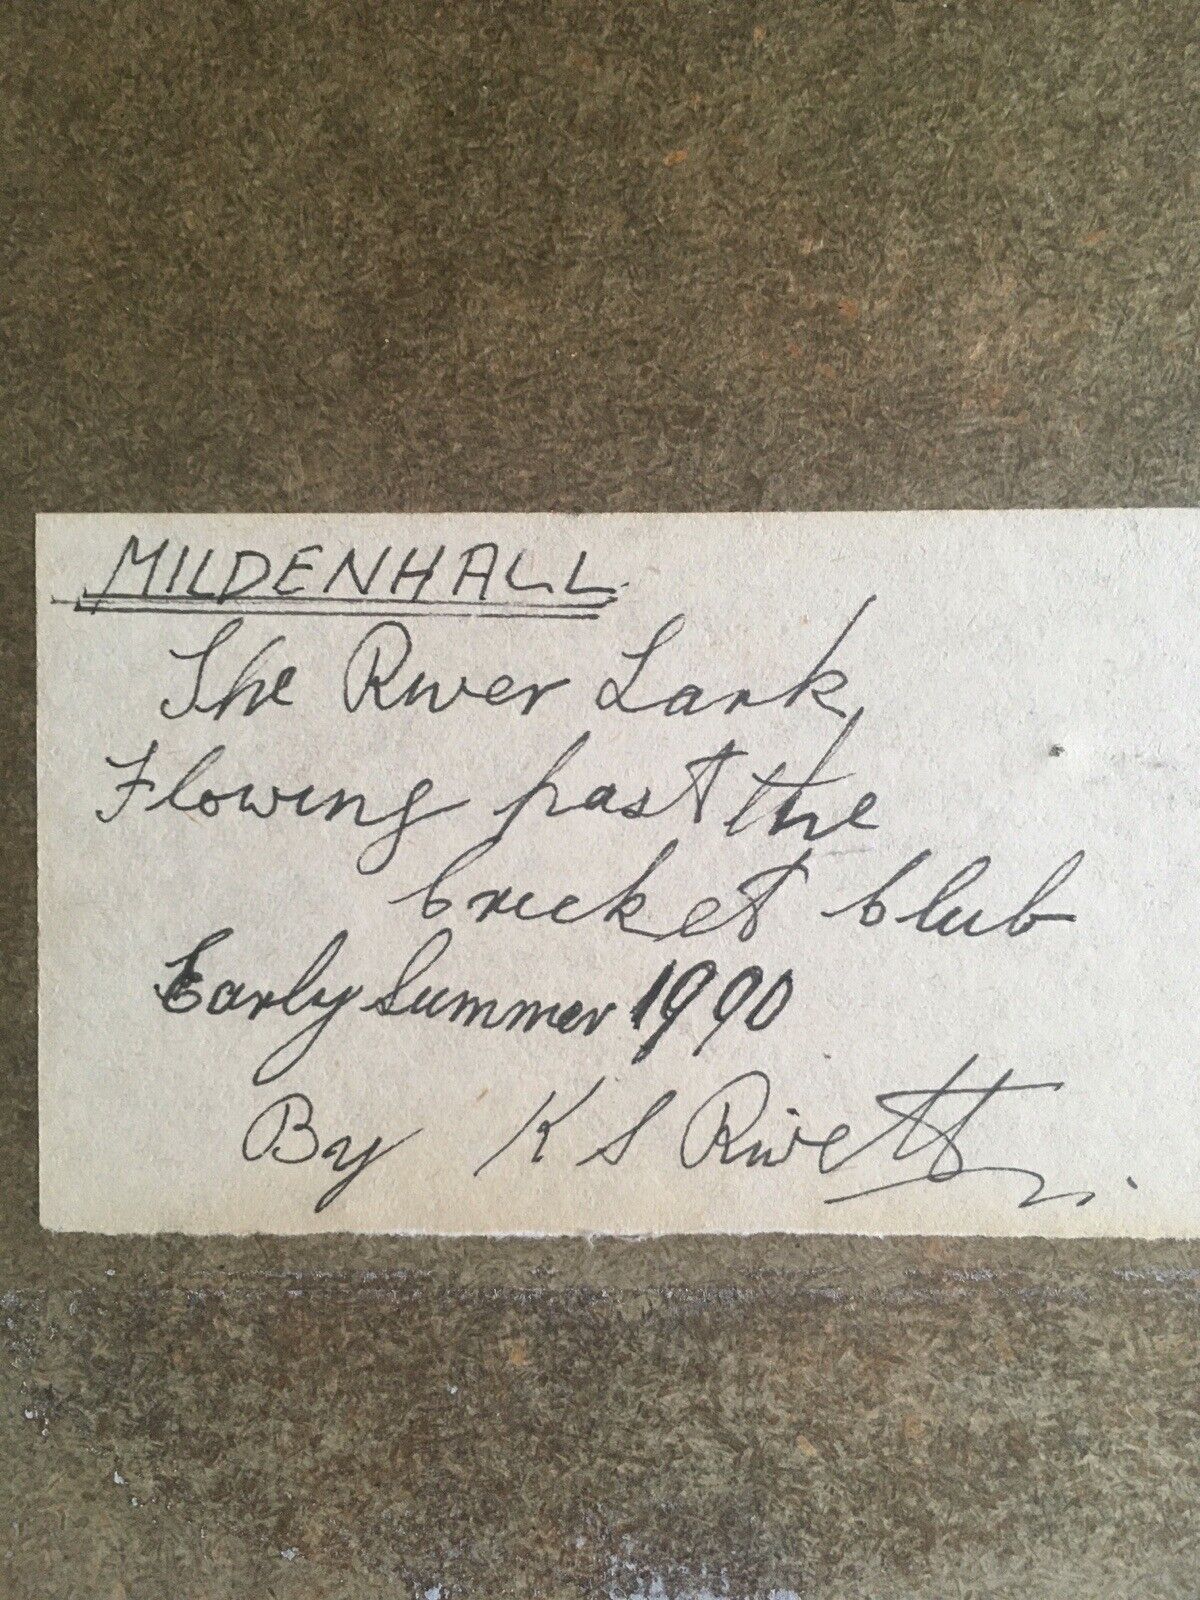 MILDENHALL
The River Lark
Flowing past the
Cricket Club
Early Summer 1990
By K S Rivett